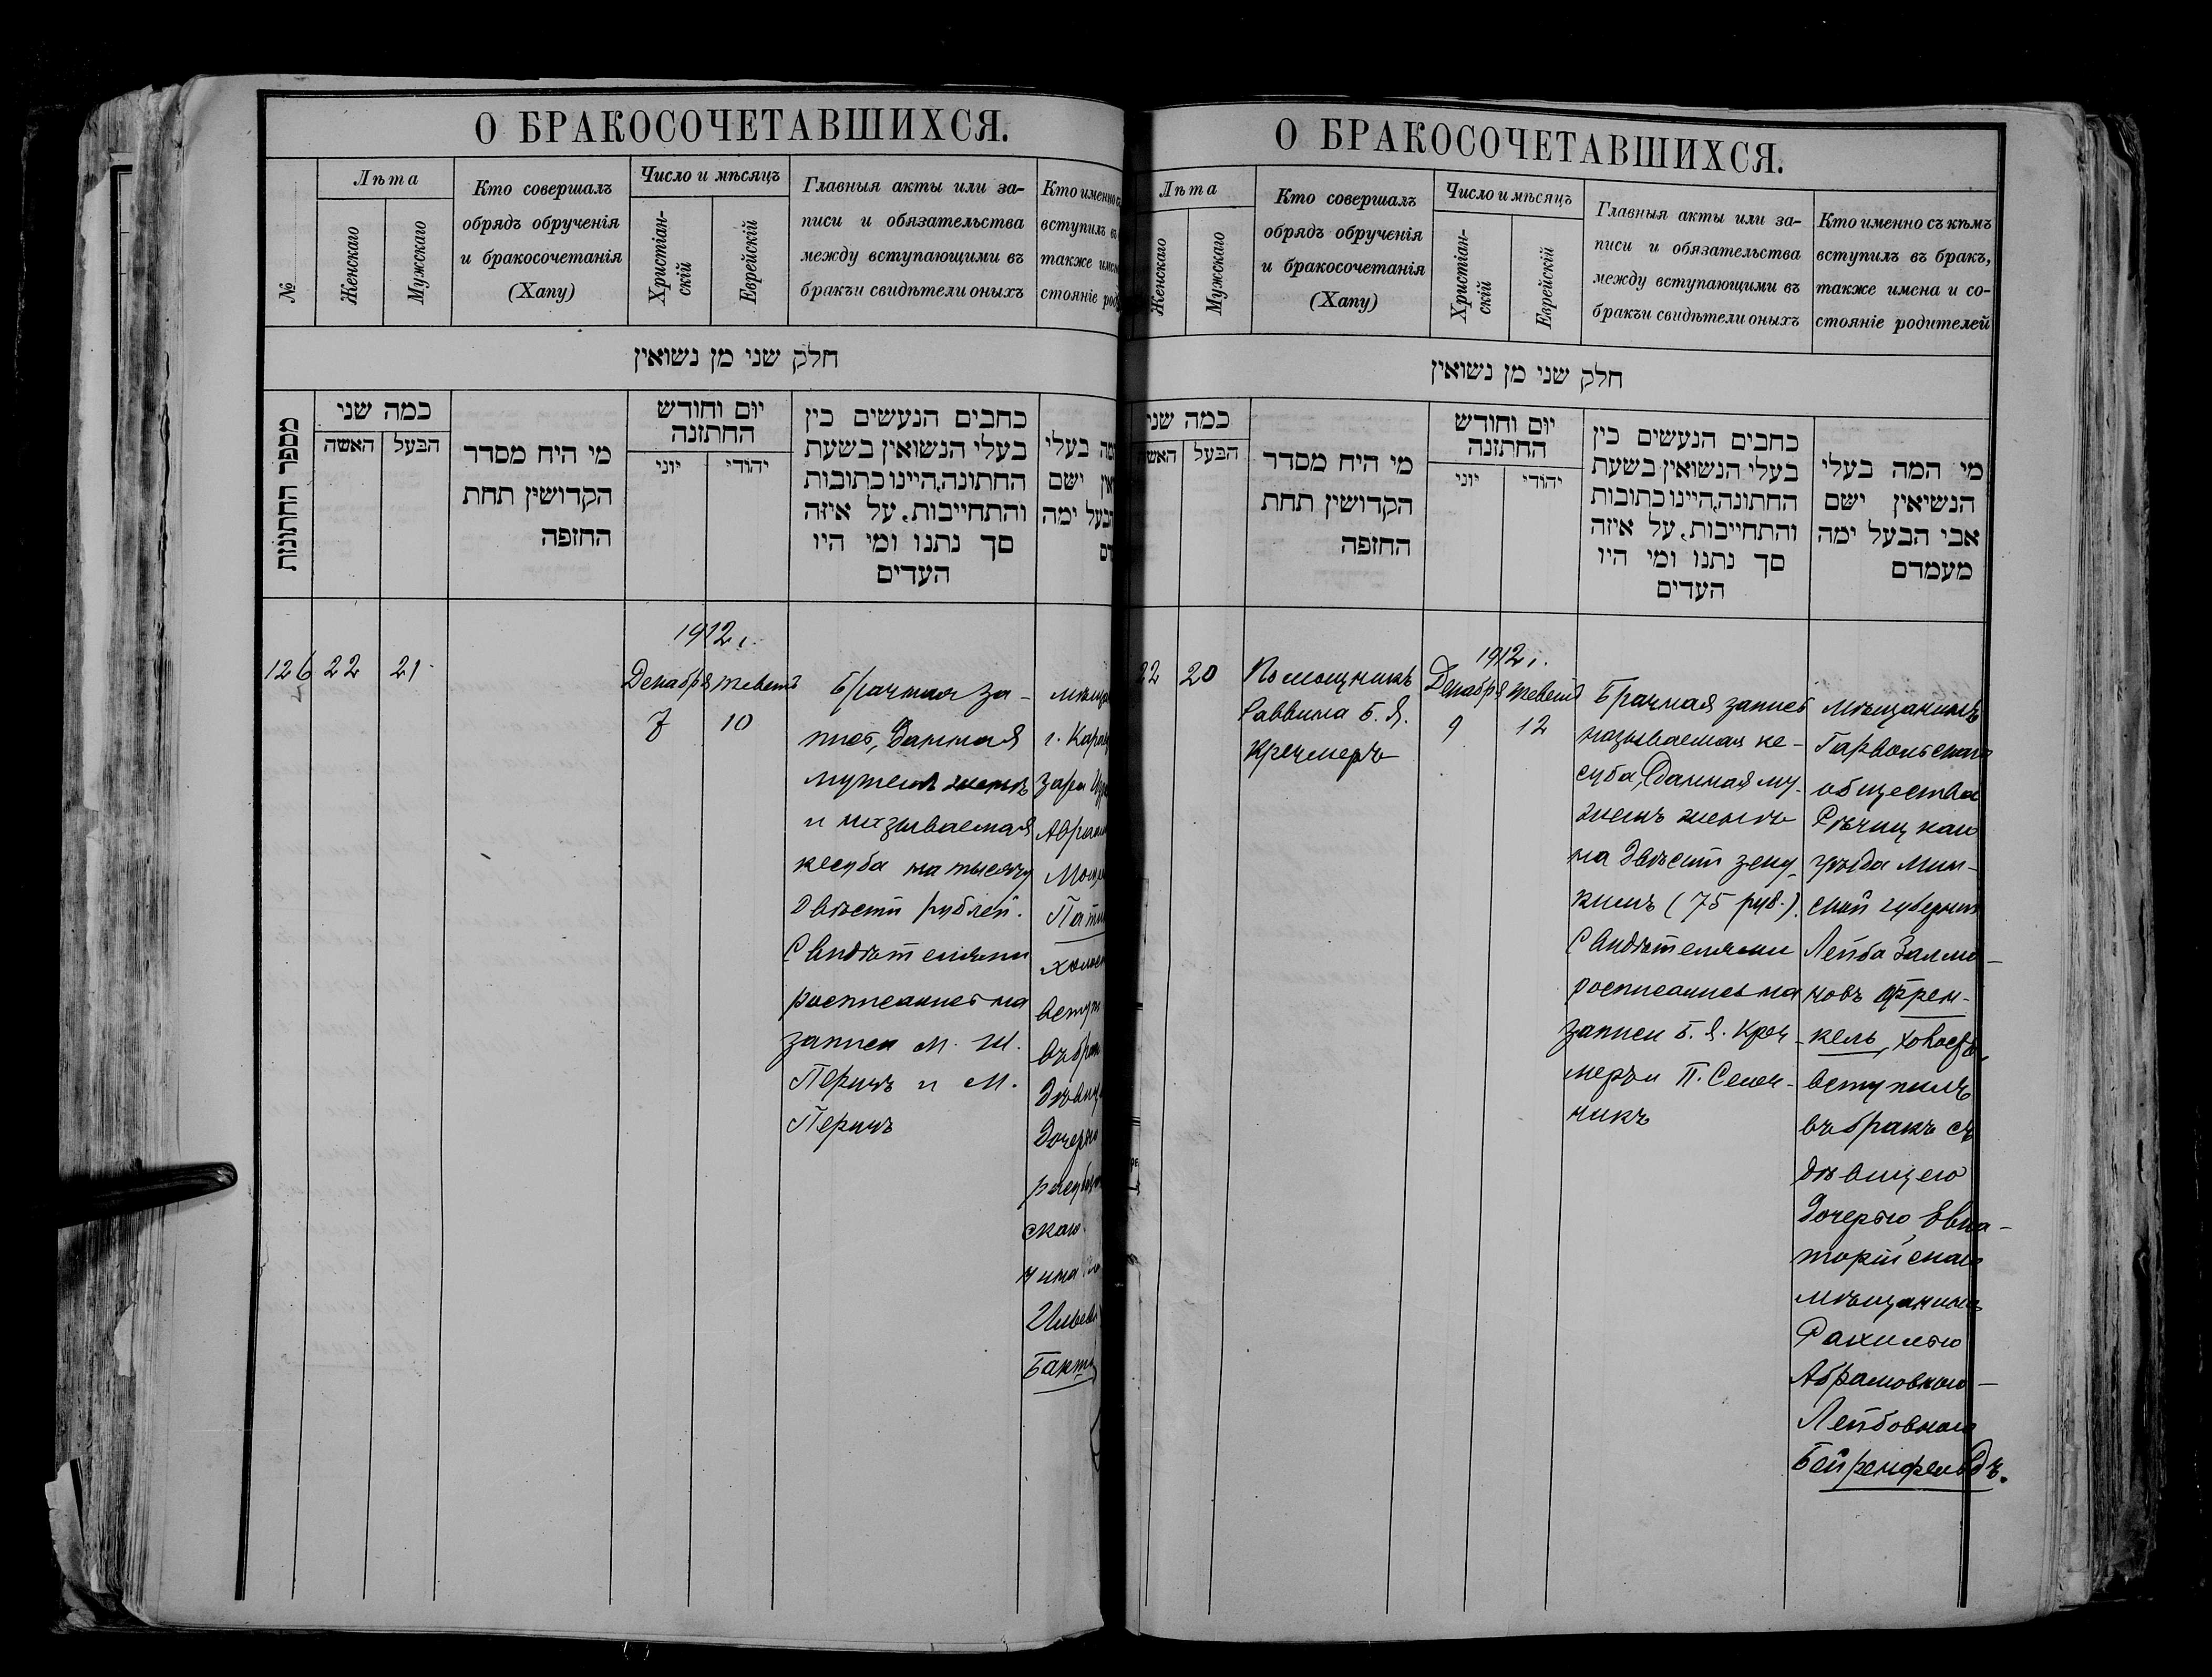 О БРАКОСОЧЕТАВШИХСЯ.
№
Лѣта
Женскаго
Мужскаго
Кто совершалъ
обрядъ обрученія
и бракосочетанія
(Хапу)
Число и мѣсяцъ
Христіан-
скій
Еврейскій
Главныя акты или за-
писи и обязательства
между вступающими въ
бракъи свидѣтели оныхъ
Кто именно
вступилъ
также
стояніе
חלק שני מן נשואין
מספר החתונות
כמה שני
האשה
הבעל
מי היה מסדר
הקדושין תחת
החופה
יום וחודש
החתונה
יוני
יהודי
כתבים הנעשים בין
בעלי הנשואין בשעת
החתונה,היינו כתובות
והתחייבות, על איזה
סך נתנו ומי היו
העדים
בעלי
ישם
הבעל ימה
126
22
21
1912 г.
Декабря
7
тевета
10
Брачная за-
пись, данная
мужемъ женѣ
и называемая
кесуба на тысячу
двѣсти рублей.
Свидѣтелями
росписались на
записи М. Ш.
Перичъ и М.
Перичъ
г.
О БРАКОСОЧЕТАВШИХСЯ.
Лѣта
Женскаго
Мужскаго
Кто совершалъ
обрядъ обрученія
и бракосочетанія
(Хапу)
Число и мѣсяцъ
Христіан-
скій
Еврейскій
Главныя акты или за-
писи и обязательства
между вступающими въ
бракъи свидѣтели оныхъ
Кто именно съ кѣмъ
вступилъ въ бракъ,
также имена и со-
стояніе родителей
חלק שני מן נשואין
כמה שני
האשה
הבעל
מי היה מסדר
הקדושין תחת
החופה
יום וחודש
החתונה
יוני
יהודי
כתבים הנעשים בין
בעלי הנשואין בשעת
החתונה,היינו כתובות
והתחייבות, על איזה
סך נתנו ומי היו
העדים
מי המה בעלי
הנשיאין ישם
אבי הבעל ימה
מעמדם
22
20
Помощникъ
Раввина Б. Я.
Кречмеръ
1912 г.
Декабря
9
тевета
12
Брачная запись
называемая ке-
суба, данная му-
жемъ женѣ
на двѣсти зеку-
кимъ (75 руб.).
Свидѣтелями
росписались на
записи Б. Я. Креч-
меръ и П.
мѣщанинъ
общества
Рѣчицкаго
уѣзда Мин-
ской губерніи
Лейба Залма-
новъ Френ-
кель, холостъ,
вступилъ
въ бракъ съ
дѣвицею
дочерью Евпа-
торійскаго
мѣщанина
Рахилью
Абрамовною-
Лейбовною
Бейренфельдъ.